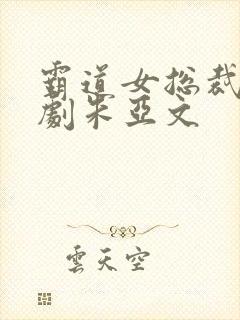 霸道女総裁
劇朱亞文
雲天空